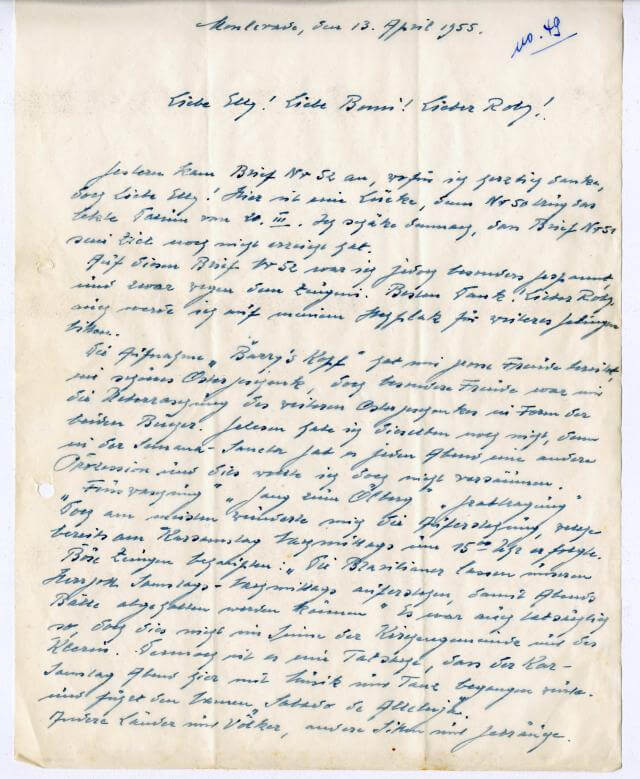 Monlevade, den 13. April 1955.
no. 49
Liebe Elly! Liebe Bomi! Lieber Roby!
Gestern kam Brief Nr 52 an, wofür ich herzlich danke,
doch liebe Elly! Hier ist eine Lücke, denn Nr 50 trug das
letzte Datum vom 20. III. Ich schätze demnach, dass Brief Nr 51
sein Ziel noch nicht erreicht hat.
Auf diesen Brief Nr 52 war ich jedoch besonders gespannt,
und zwar wegen dem Zeugnis. Besten Dank. Lieber Roby,
auch werde ich auf meinem für weiteres Gelingen
bitten.
Die Aufnahme „Barry's Kopf" hat mir grosse Freude bereitet,
ein schönes Ostergeschenk, doch besondere Freude war mir
die Ueberraschung des weiteren Ostergeschenkes in Form der
beiden Bücher. Gelesen habe ich dieselben noch nicht, denn
in der Semana-Sancta gab es jeden Abend eine andere
Prozession und dies wollte ich doch nicht versäumen.
„Fusswaschung" „Gang zum Ölberg" „Grabtragung"
Doch am meisten wunderte mich die Auferstehung, welche
bereits am Karsamstag Nachmittags um 15⁰⁰ Uhr erfolgte.
Böse Zungen behaupten: „Die Brasilianer lassen unseren
Herrgott Samstags-Nachmittags auferstehen, damit Abends
Bälle abgehalten werden können" Es war auch tatsächlich
so, doch dies nicht im Sinne der Kirchengemeinde und des
Klerus. Dennoch ist es eine Tatsache, dass der Kar-
Samstag Abend hier mit Musik und Tanz begangen wurde.
und führt den Namen „Sabado de Alleluja".
Andere Länder und Völker, andere Sitten und Gebräuche.